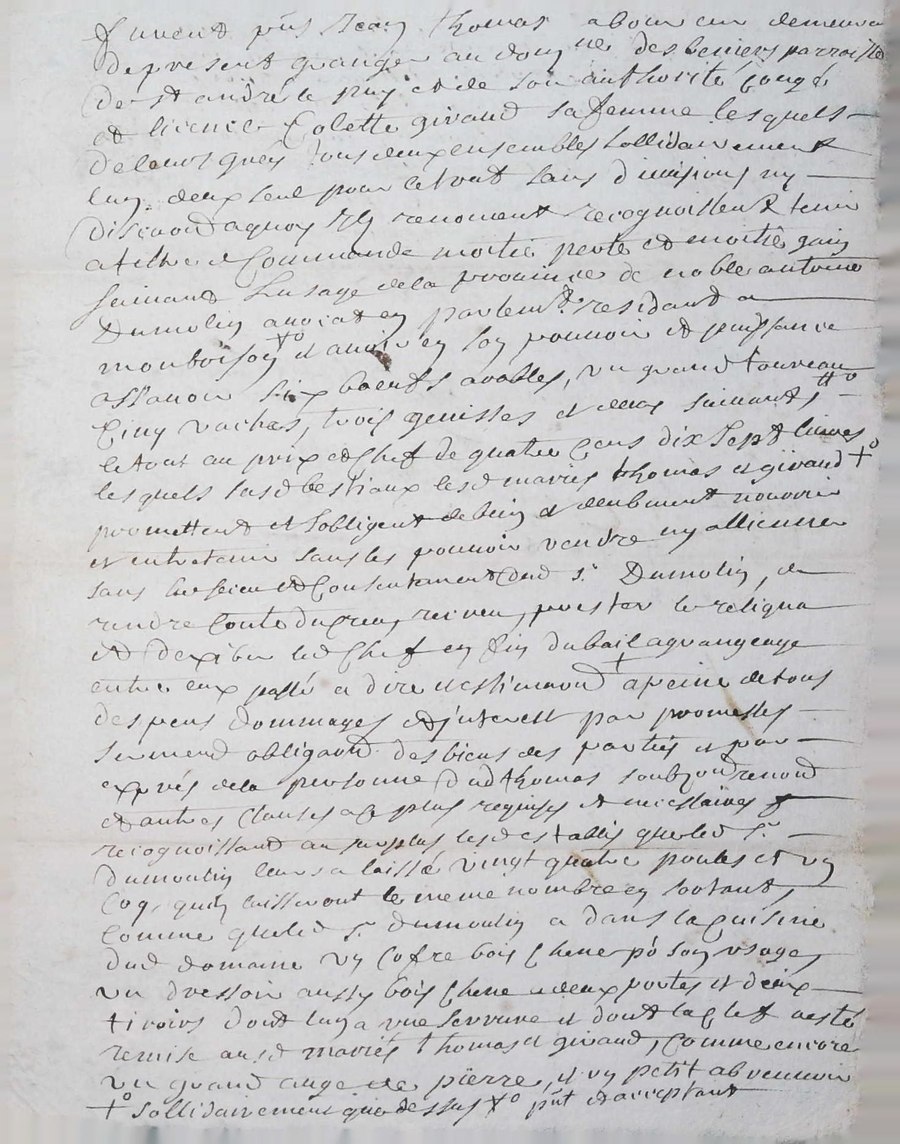 furent pñs Jean thomas laboureur demeurant
depresent granger au domne des beniers parroisse
de st andré le puy et de son authorité congé
et licence Colette girand sa femme lesquels
deleurs grés tous deux ensembles sollidairement
lun deux seul pour letout sans division ny
discord aquoy ils renoncent recognoissent tenir
atiltre de Commande moitié perte et moitié gain
suivant lusage dela province de noble antoine
Dumolin avocat en parlemt residant a
montbrison +o et avoir en son pouvoir et puissance
assavoir six boeufs arables, un grand taureau
Cinq vaches, trois genisses et deux suivants, ++o
letout au prix et Chef de quatre Cens dix sept livres
lesquels susd bestiaux lesd mariés thomas et girand +o
promettent et sobligent de bien et deubment nourrir
et entretenir sans les pouvoir vendre ny alliener
sans le sceu et Consentement dud sr Dumolin, en
rendre Conte du creu, revenu, prester le reliqua
et dexiber led Chef en fin du bail agrangeage
entre eux passé a dire destimaon + apeine de tous
despens dommages et interest par promesses
serment obligaon des biens des parties et par
exprés dela personne dud thomas soubzon renon
et autres clauses a ce plus requises et necessaires
recognoissant au surplus lesd establis que led sr
dumoulin leurs a laissé vingt quatre poules et un
Coq, quils laisseront le meme nombre en sortant,
Comme que led sr Dumoulin a dans la Cuisine
dud domaine un Cofre bois Chene pr son usage,
un dressoir aussy bois Chene a deux portes et deux
tiroirs dont lun a une serrure et dont la Clef a esté
remise ausd mariés thomas et girand, Comme encore
un grand auge de pierre, et un petit abreuvoir
+o sollidairement que dessus +o pñt et acceptant